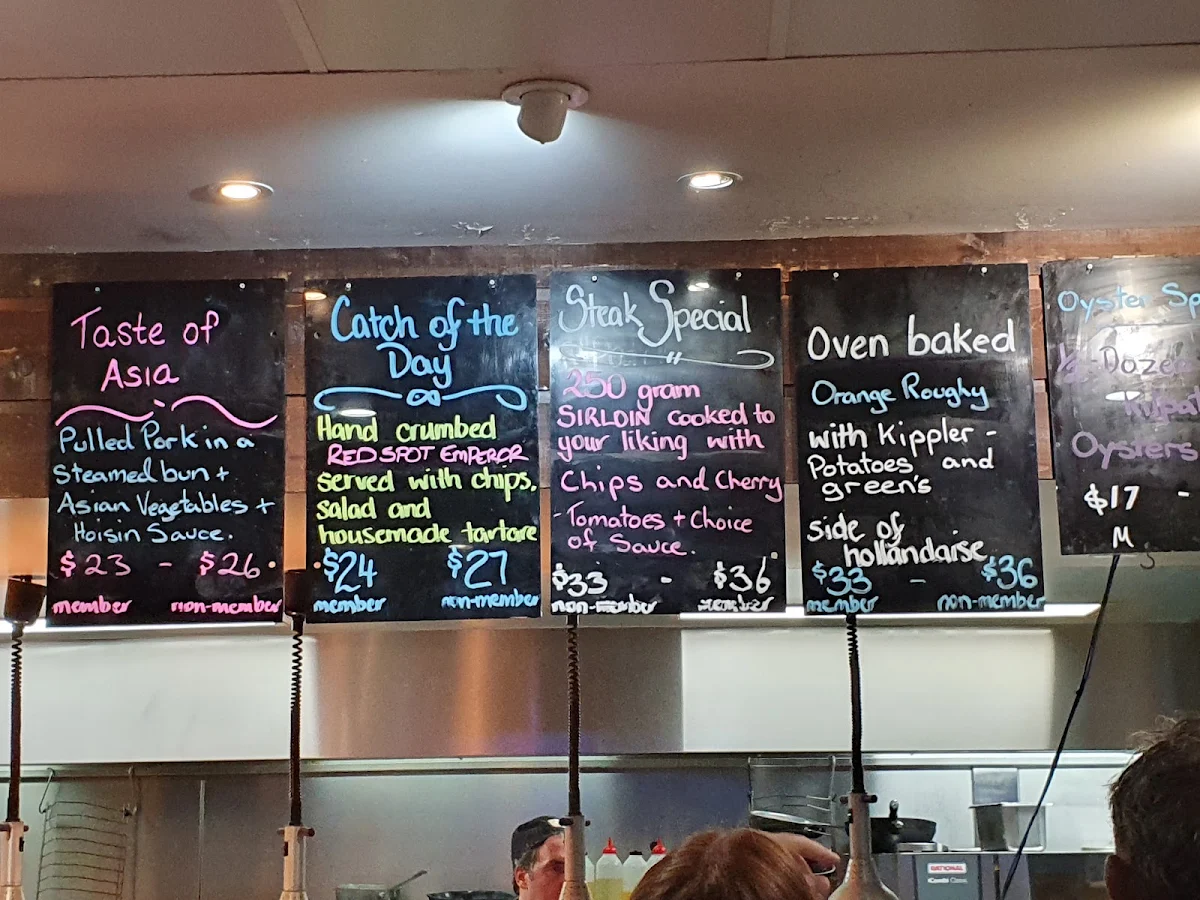 Taste of
Asia
Pulled Pork in a
Steamed bun +
Asian Vegetables +
Hoisin Sauce.
$23 - $26.
member non-member
Catch of the
Day
Hand crumbed
RED SPOT EMPEROR
served with chips,
salad and
housemade tartare
$24 $27
member non-member
Steak Special
250 gram
SIRLOIN cooked to
your liking with
Chips and Cherry
- Tomatoes + Choice
of Sauce.
$33 - $36
non-member member
Oven baked
Orange Roughy
with Kippler -
Potatoes and
green's
side of
hollandaise
$33 - $36
member non-member
Oyster Sp
½ Dozen
Oysters
$17 -
M
RATIONAL
iCombi Classic